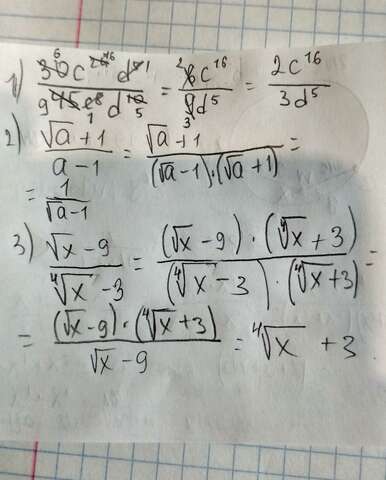 1) (30c^24 d^5)/(45c^8 d^10) = (6c^16)/(9d^5) = (2c^16)/(3d^5)
2) (√a + 1)/(a - 1) = (√a + 1)/((√a - 1)·(√a + 1)) =
= 1/(√a - 1)
3) (√x - 9)/(∜x - 3) = ((√x - 9)·(∜x + 3))/((∜x - 3)·(∜x + 3)) =
= ((√x - 9)·(∜x + 3))/(√x - 9) = ∜x + 3.